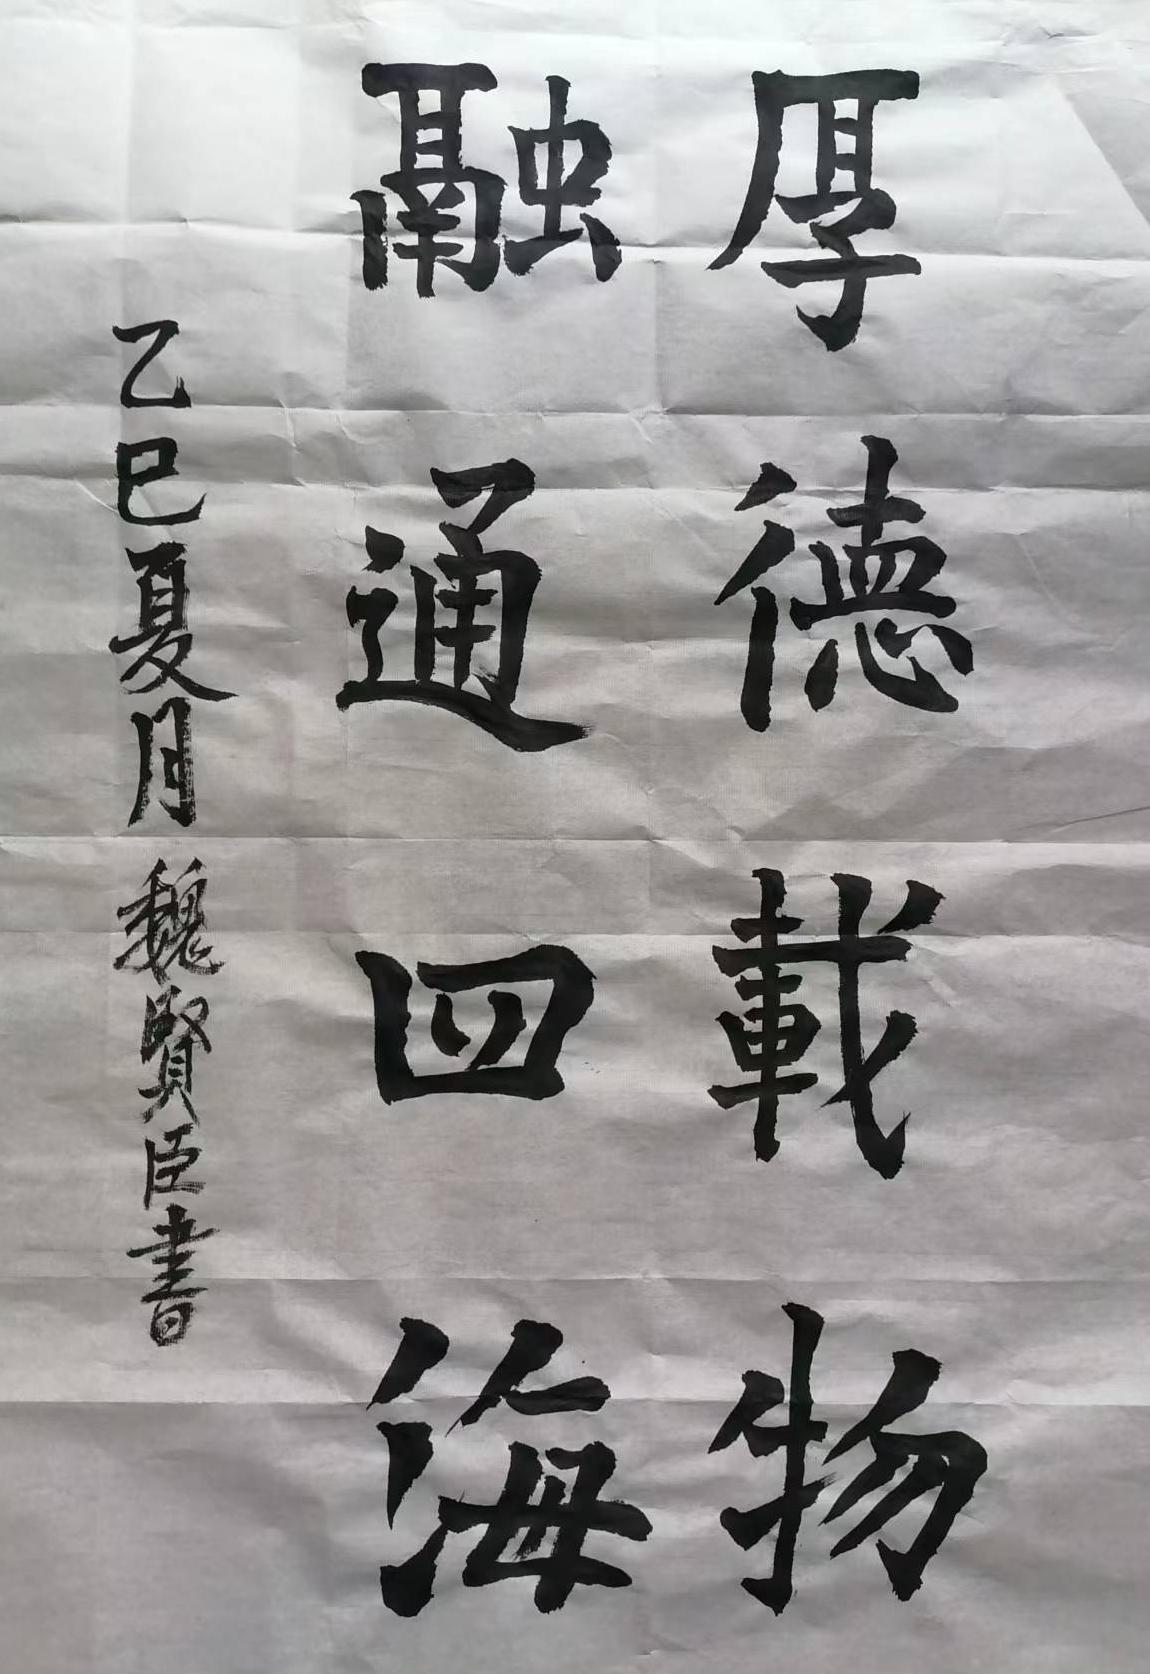 厚德載物
融通四海
乙巳夏月 魏賢臣書